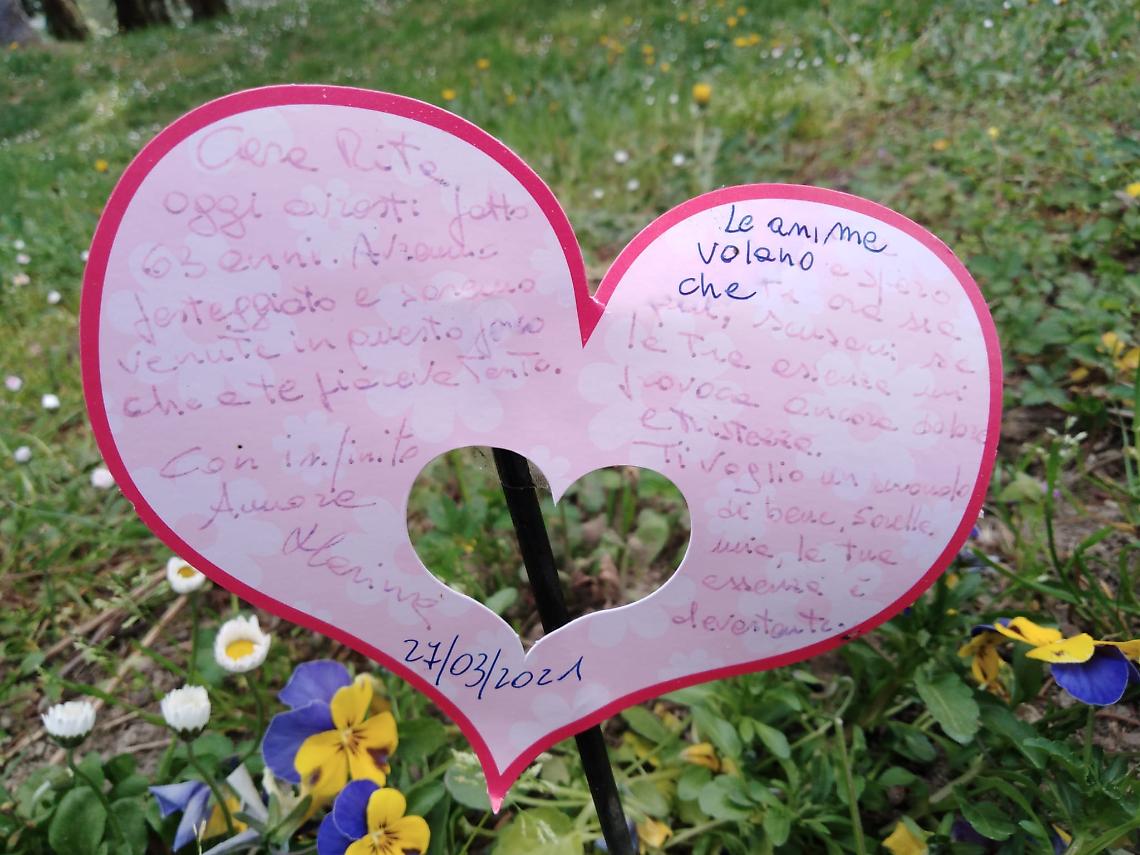 Cara Rita
oggi avresti fatto
63 anni. Avremmo
festeggiato e saremmo
venute in questo parco
che a te piaceva tanto.
Con infinito
Amore
Marina
27/03/2021
Le anime
volano
che e spero
ora sia
la tua assenza mi
provoca ancora dolore
e tristezza.
Ti voglio un mondo
di bene, sorella
mia, la tua
assenza è
devastante.